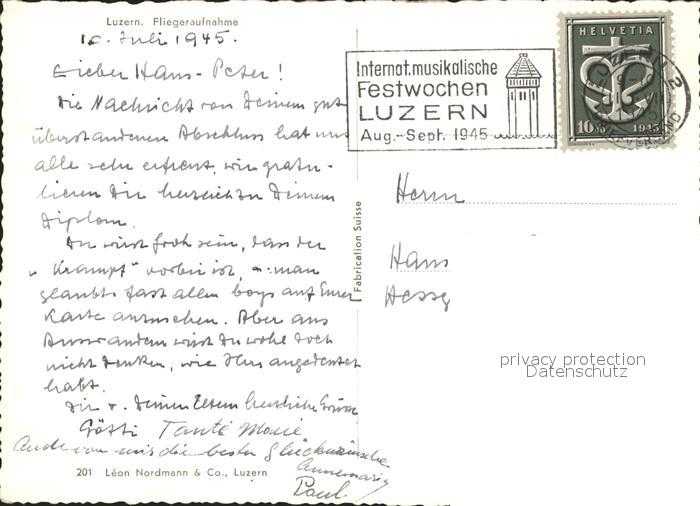 Luzern. Fliegeraufnahme
10. Juli 1945.
Lieber Hans-Peter!
Die Nachricht von Deinem gut
überstandenen Abschluss hat uns
alle sehr erfreut, wir gratu-
lieren Dir herzlich zu Deinem
Diplom.
Du wirst froh sein, dass der
„Krampf" vorbei ist, man
glaubts fast allen boys auf Eurer
Karte anzusehen. Aber ans
Auswandern wirst Du wohl doch
nicht denken, wie Ihrs angedeutet
habt.
Dir u. Deinen Eltern herzliche Grüsse
Götti Tante Marie
Auch von mir die besten Glückwünsche
Annemarie
Paul.
201 Léon Nordmann & Co., Luzern
Fabrication Suisse
Internat. musikalische
Festwochen
LUZERN
Aug.-Sept. 1945
HELVETIA
10 1945
Herrn
Hans
privacy protection
Datenschutz